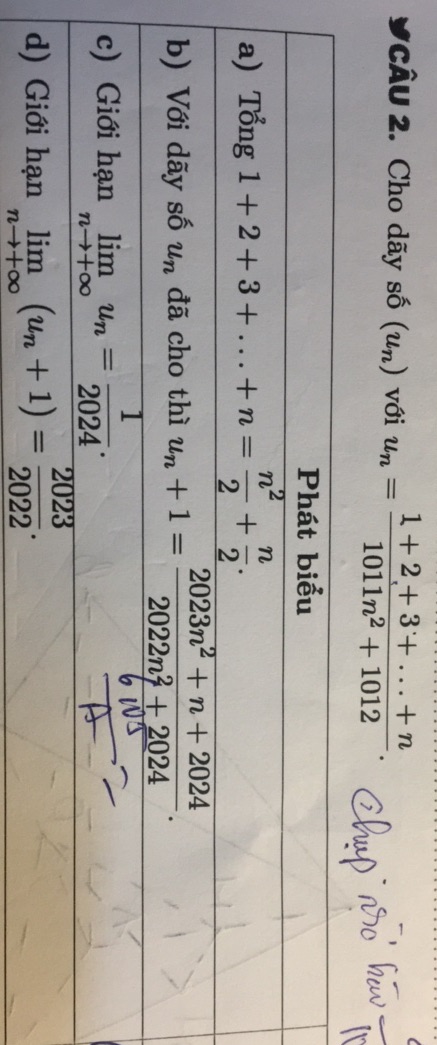 CÂU 2. Cho dãy số (uₙ) với uₙ = (1 + 2 + 3 + ... + n)/(1011n² + 1012).
Phát biểu
a) Tổng 1 + 2 + 3 + ... + n = n²/2 + n/2.
b) Với dãy số uₙ đã cho thì uₙ + 1 = (2023n² + n + 2024)/(2022n² + 2024).
c) Giới hạn lim n→+∞ uₙ = 1/2024.
d) Giới hạn lim n→+∞ (uₙ + 1) = 2023/2022.